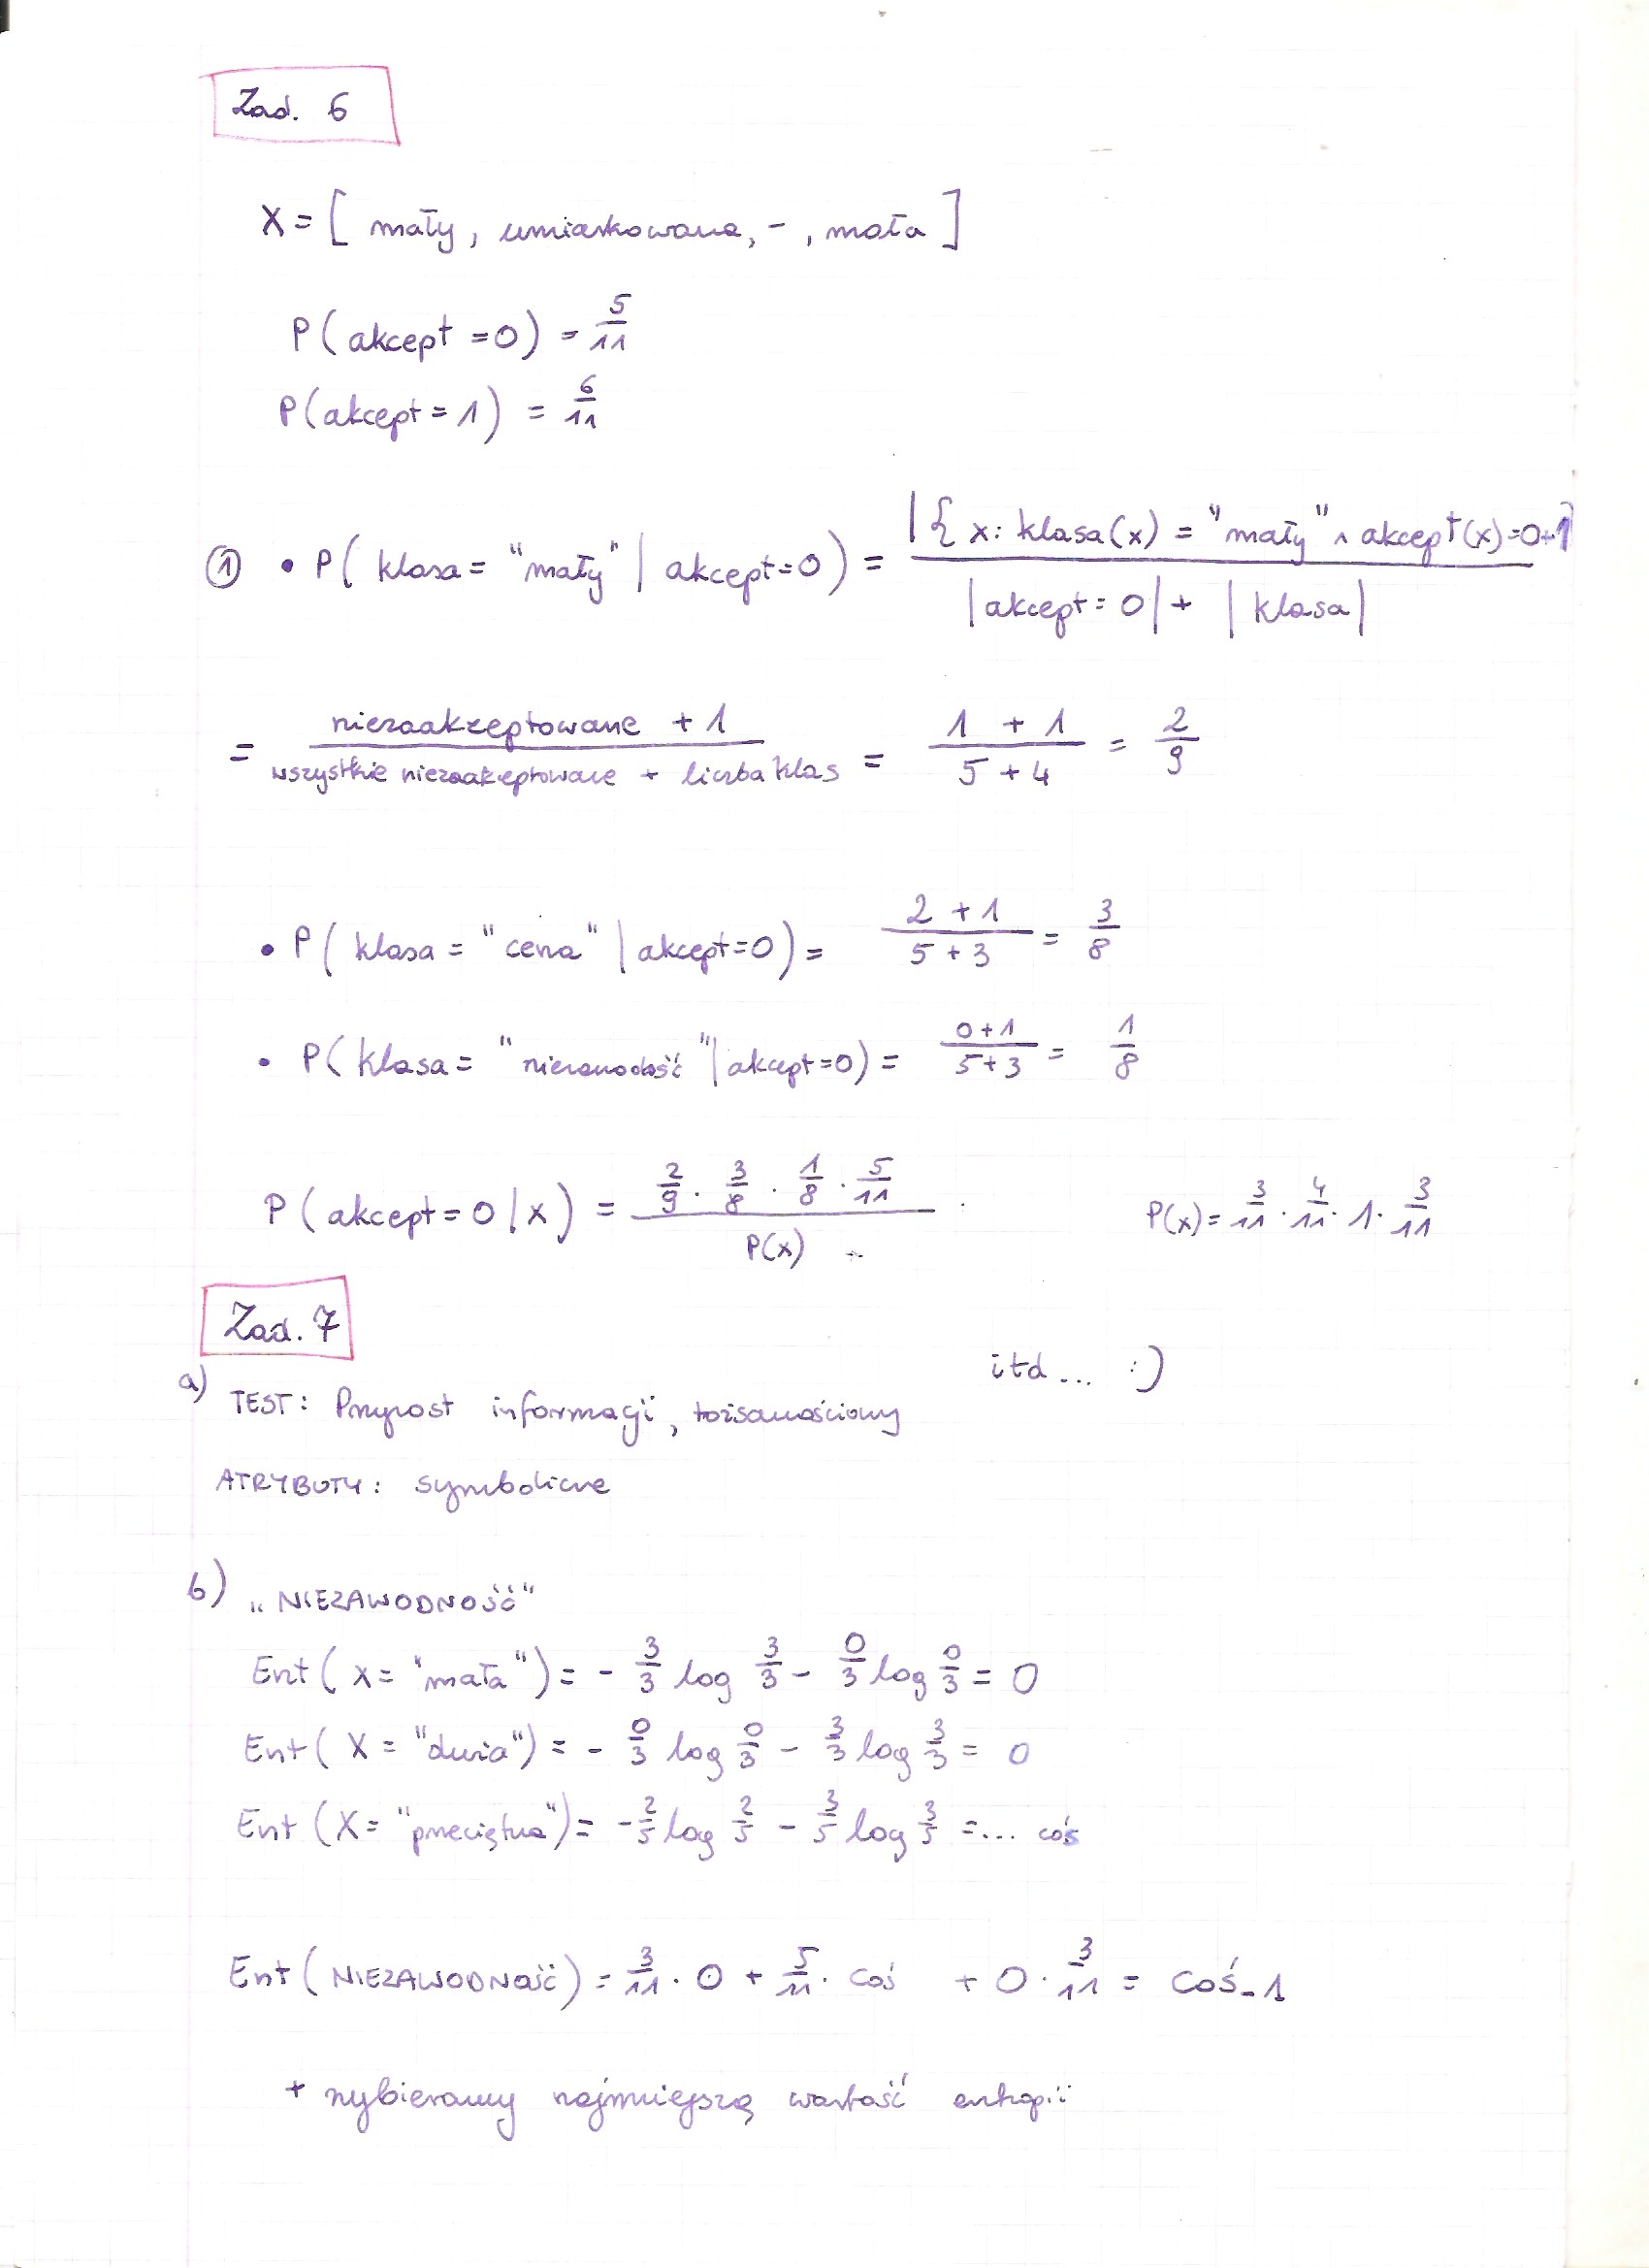 Zad. 6
X = [ mały, umiarkowana, - , mała ]
P( akcept = 0 ) = 5/11
P( akcept = 1 ) = 6/11
① • P( klasa = "mały" | akcept=0 ) = |{ x: klasa(x) = "mały" ∧ akcept(x)=0+1 / |akcept = 0| + |klasa|
= niezaakceptowane + 1 / wszystkie niezaakceptowane + liczba klas = 1 + 1 / 5 + 4 = 2/9
• P( klasa = "cena" | akcept=0 ) = 2 + 1 / 5 + 3 = 3/8
• P( klasa = "niezawodość" | akcept=0 ) = 0+1 / 5+3 = 1/8
P ( akcept = 0 | x ) = 2/9 · 3/8 · 1/8 · 5/11 / P(x) P(x) = 3/11 · 4/11 · 1 · 3/11
Zad. 7
itd... :)
a) TEST: Przyrost informacji, tożsamościowy
ATRYBUTY: symboliczne
b) „NIEZAWODNOŚĆ"
Ent( x = "mała" ) = - 3/3 log 3/3 - 0/3 log 0/3 = 0
Ent( X = "duża" ) = - 0/3 log 0/3 - 3/3 log 3/3 = 0
Ent (X = "przeciętna") = - 2/5 log 2/5 - 3/5 log 3/5 = ... coś
Ent ( NIEZAWODNOŚĆ ) = 3/11 · 0 + 5/11 · coś + 0 · 3/11 = coś_1
+ wybieramy najmniejszą wartość entropii